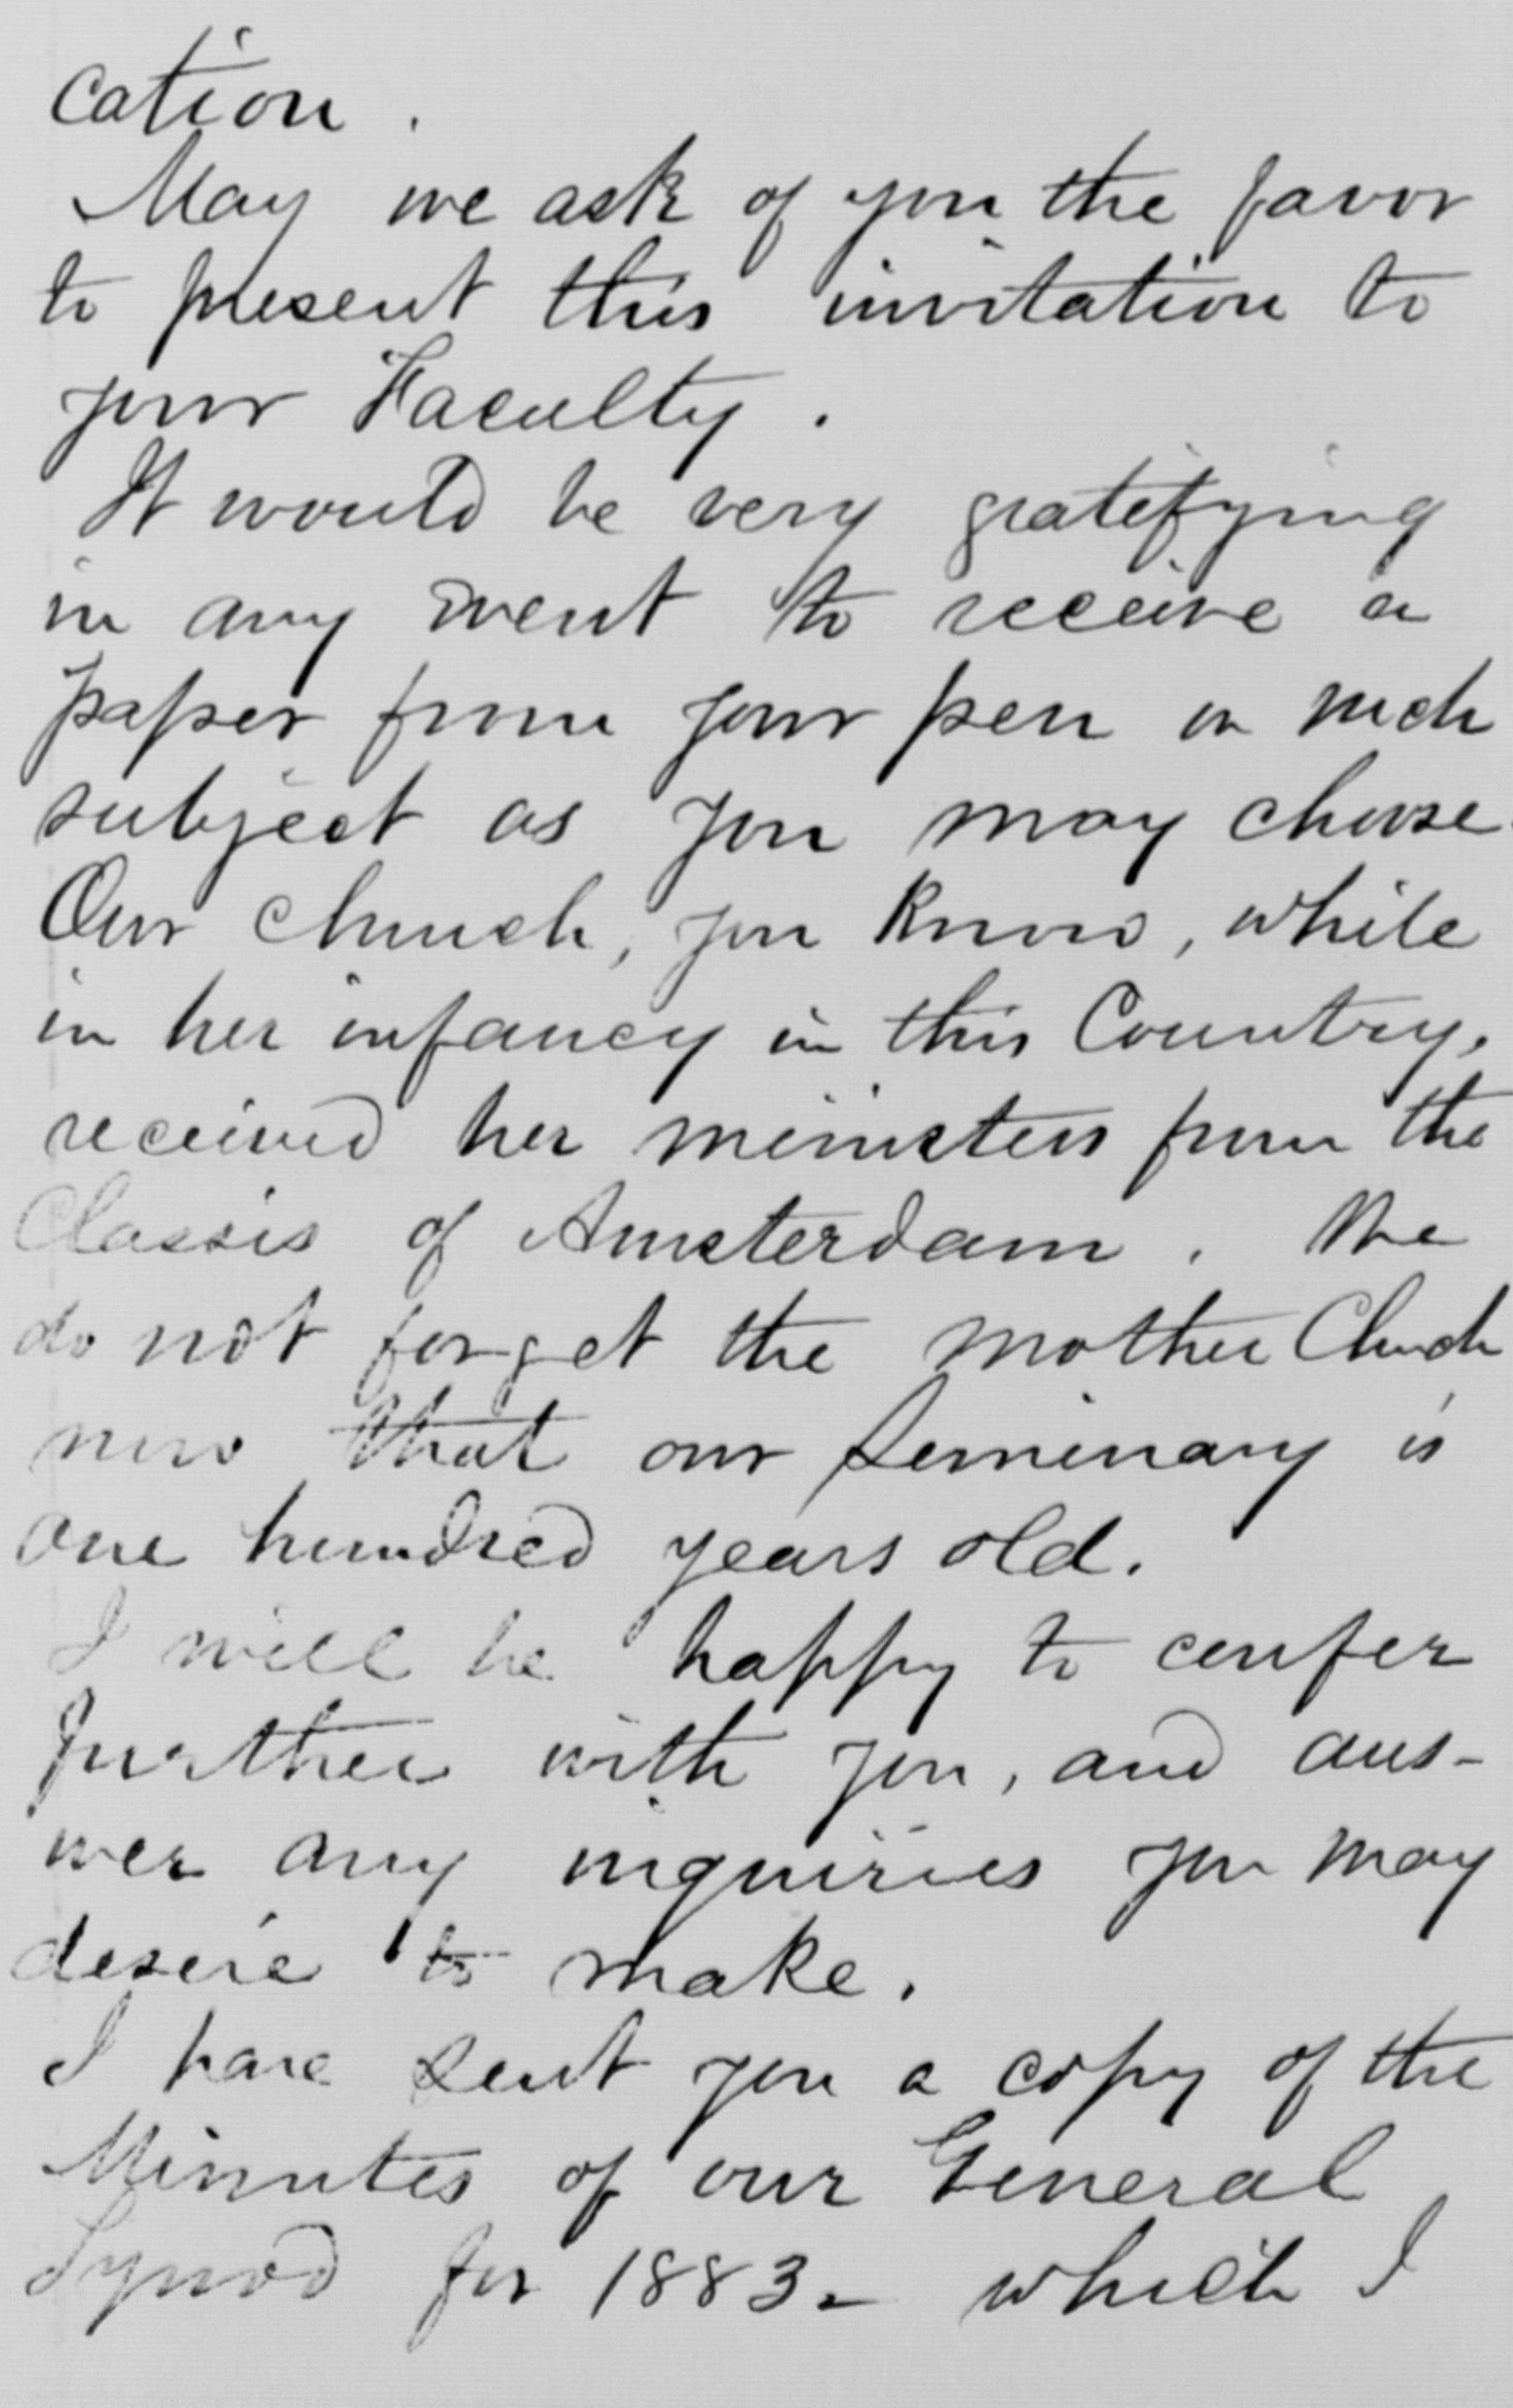 cation.
May we ask of you the favor
to present this invitation to
your Faculty.
It would be very gratifying
in any event to receive a
paper from your pen on such
subject as you may choose.
Our church, you know, while
in her infancy in this Country,
received her ministers from the
Classis of Amsterdam. We
do not forget the mother Church
now that our Seminary is
one hundred years old.
I will be happy to confer
further with you, and ans-
wer any inquiries you may
desire to make.
I have sent you a copy of the
Minutes of our General
Synod for 1883 - which I